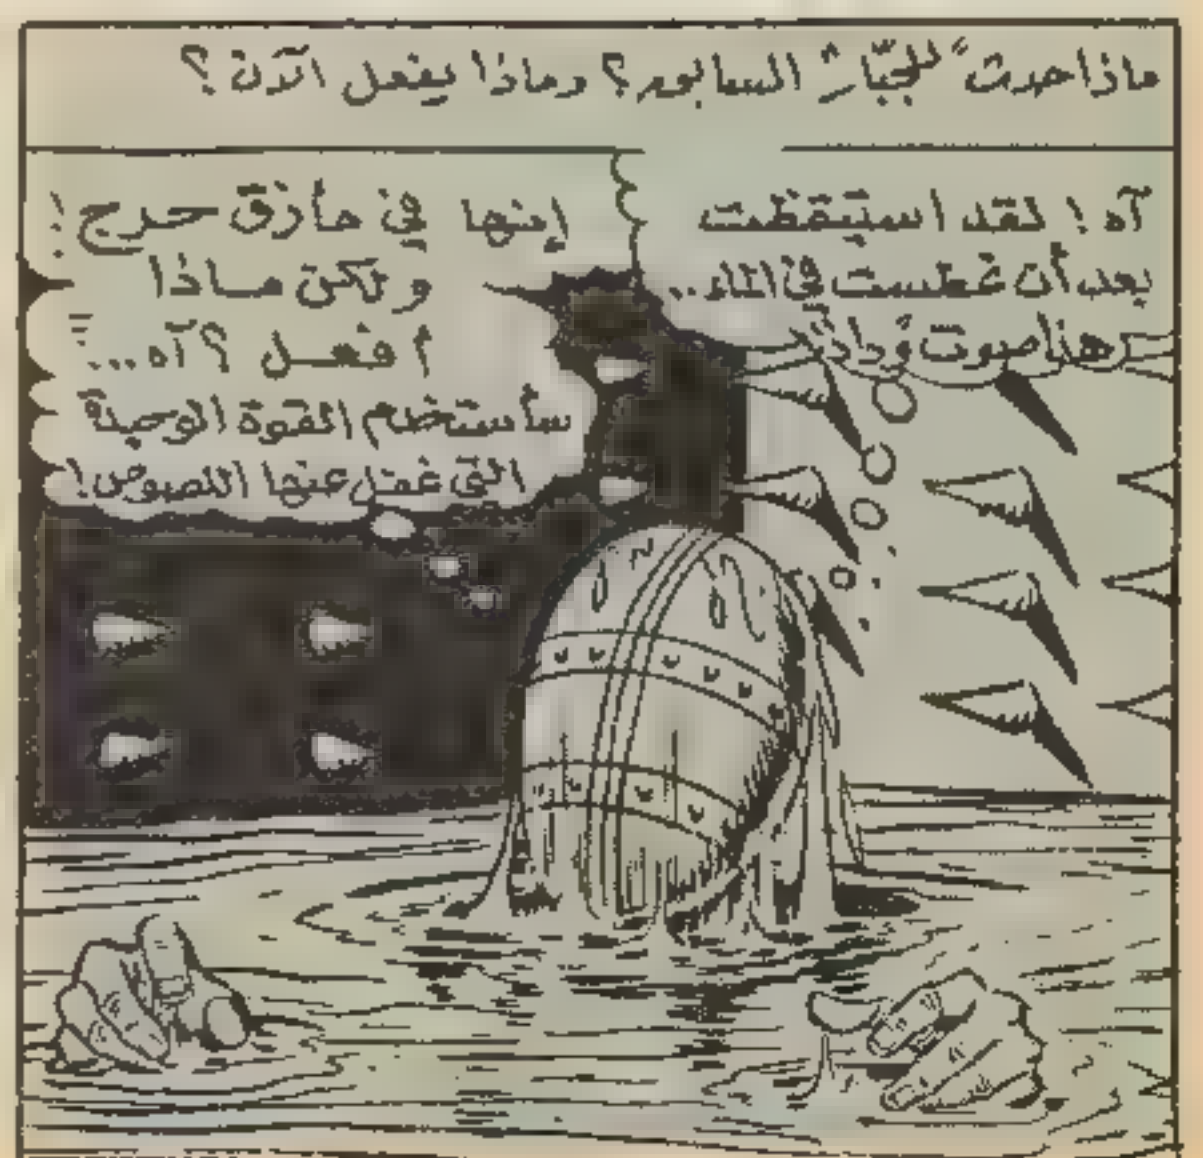 ماذا حدث "للجبّار" السابق؟ وماذا يفعل الآن؟
آه! لقد استيقظت
بعد أن غطست في الماء..
هذا صوت
إنها في مأزق حرج!
ولكن ماذا
أفعل؟ آه...
سأستخدم القوة الوحيدة
التي غفل عنها اللصوص!